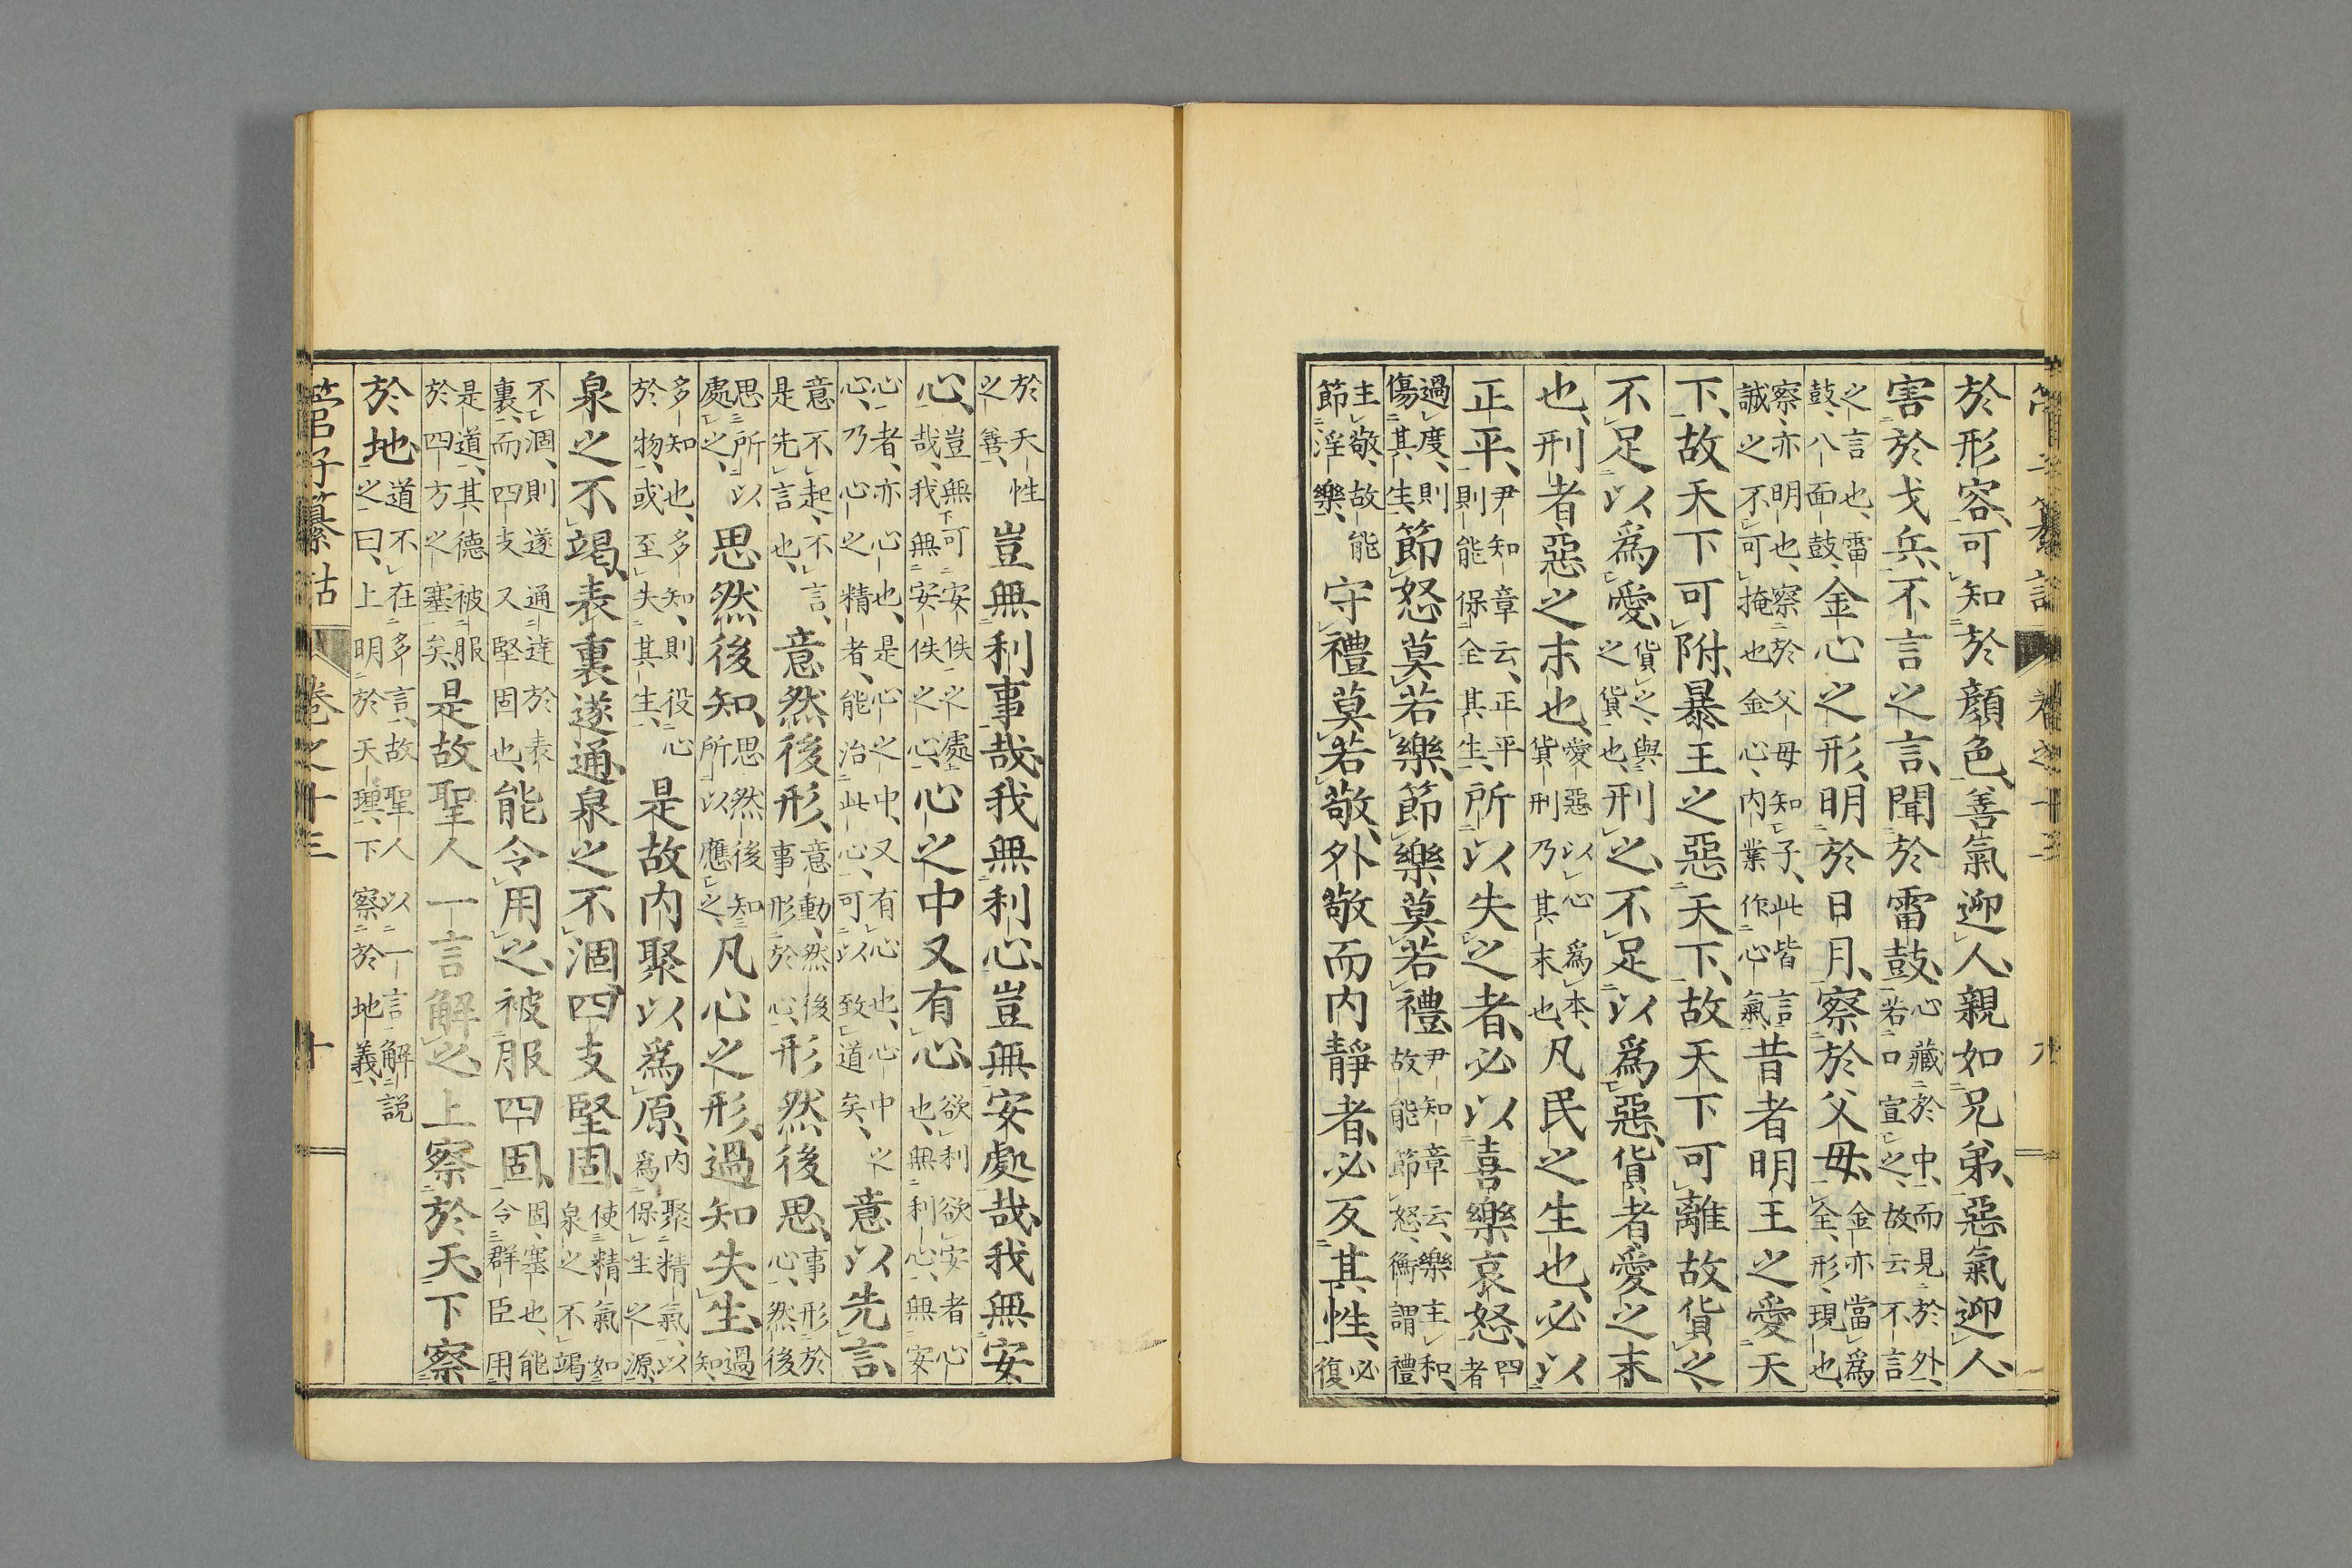 管子纂詁 卷之十三 九
於形容可知於顏色善氣迎人親如兄弟惡氣迎人
害於戈兵不言之言聞於雷鼓心藏於中而見於外若口宣之故云不言
之言也雷鼓八面鼓金心之形明於日月察於父母金亦當爲全形現也
察亦明也察於父母知子此皆言誠之不可掩也金心內業作心氣昔者明王之愛天
下故天下可附暴王之惡天下故天下可離故貨之
不足以爲愛貨之與之貨也刑之不足以爲惡貨者愛之末
也刑者惡之末也愛惡以心爲本貨刑乃其末也凡民之生也必以
正平尹知章云正平則能保全其生所以失之者必以喜樂哀怒四者
過度則傷其生節怒莫若樂節樂莫若禮尹知章云樂主和故能節怒衡謂禮
主敬故能節淫樂守禮莫若敬外敬而內靜者必反其性必復
於天性之善豈無利事哉我無利心豈無安處哉我無安
心豈無可安佚之處哉我無安佚之心心之中又有心欲利欲安者心也無利心無安
心者亦心也是心之中又有心也心中之心乃心之精者能治此心可以致道矣意以先言
意不起不言是先言也意然後形意動然後事形於心形然後思事形於心然後
思所以處之思然後知思然後知所以應之凡心之形過知失生過知
多知也多知則役心於物或至失其生是故內聚以爲原內聚精氣以爲保生之源
泉之不竭表裏遂通泉之不涸四支堅固使精氣如泉之不竭
不涸則遂通達於表裏而四支又堅固也能令用之被服四固固塞也能令群臣用
是道其德被服於四方之塞矣是故聖人一言解之上察於天下察
於地道不在多言故聖人以一言解說之曰上明於天理下察於地義
管子纂詁 卷之十三 十